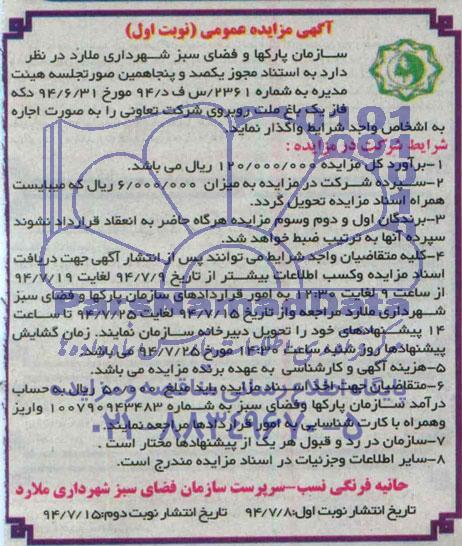 آگهی مزایده عمومی (نوبت اول)
سازمان پارکها و فضای سبز شهرداری ملارد در نظر
دارد به استناد مجوز یکصد و پنجاهمین صورتجلسه هیئت
مدیره به شماره ۲۳۶۱/س ف د/۹۴ مورخ ۹۴/۶/۳۱ دکه
فاز یک باغ ملت روبروی شرکت تعاونی را به صورت اجاره
به اشخاص واجد شرایط واگذار نماید.
شرایط شرکت در مزایده :
۱-برآورد کل مزایده ۱۲۰/۰۰۰/۰۰۰ ریال می باشد.
۲-سپرده شرکت در مزایده به میزان ۶/۰۰۰/۰۰۰ ریال که میبایست
همراه اسناد مزایده تحویل گردد.
۳-برندگان اول و دوم وسوم مزایده هرگاه حاضر به انعقاد قرارداد نشوند
سپرده آنها به ترتیب ضبط خواهد شد.
۴-کلیه متقاضیان واجد شرایط می توانند پس از انتشار آگهی جهت دریافت
اسناد مزایده وکسب اطلاعات بیشتر از تاریخ ۹۴/۷/۹ لغایت ۹۴/۷/۱۹
از ساعت ۹ لغایت ۱۲:۳۰ به امور قراردادهای سازمان پارکها و فضای سبز
شهرداری ملارد مراجعه واز تاریخ ۹۴/۷/۱۵ لغایت ۹۴/۷/۲۵ تا ساعت
۱۴ پیشنهادهای خود را تحویل دبیرخانه سازمان نمایند. زمان گشایش
پیشنهادها روز شنبه ساعت ۱۴:۳۰ مورخ ۹۴/۷/۲۵ می باشد.
۵-هزینه آگهی و کارشناسی به عهده برنده مزایده می باشد.
۶-متقاضیان جهت اخذ اسناد مزایده باید مبلغ ریال به حساب
درآمد سازمان پارکها وفضای سبز به شماره ۱۰۰۷۹۰۹۴۳۴۸۳ واریز
وهمراه با کارت شناسایی به امور قراردادها مراجعه نمایند.
۷-سازمان در رد و قبول هر یک از پیشنهادها مختار است.
۸-سایر اطلاعات وجزئیات در اسناد مزایده مندرج است.
حانیه فرنگی نسب-سرپرست سازمان فضای سبز شهرداری ملارد
تاریخ انتشار نوبت اول:۹۴/۷/۸ تاریخ انتشار نوبت دوم:۹۴/۷/۱۵